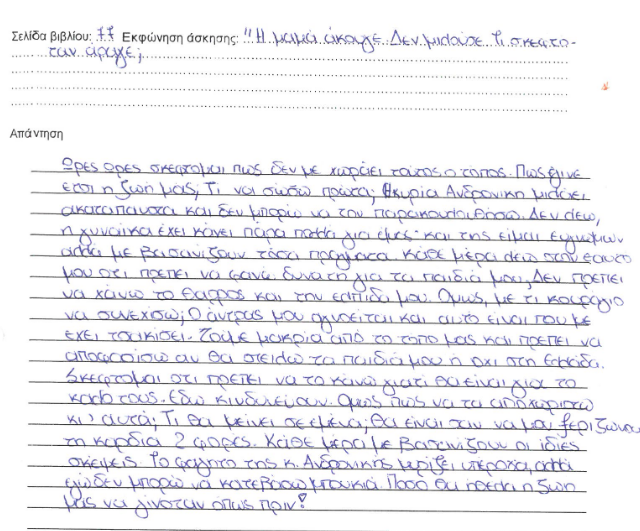 Σελίδα βιβλίου: 77 Εκφώνηση άσκησης: "Η μαμά άκουγε. Δεν μιλούσε. Τι σκεφτό-
ταν άραγε;
Απάντηση
Ωρες ωρες σκεφτομαι πως δεν με χωράει τούτος ο τόπος. Πως έγινε
ετσι η ζωη μας; Τι να σώσω πρώτα; Η κυρία Ανδρονικη μιλάει
ακαταπαυστα και δεν μπορώ να την παρακολουθήσω. Δεν λεω,
η γυναίκα έχει κάνει πάρα πολλα για εμας και της είμαι ευγνωμων
αλλα με βασανιζουν τόσα πράγματα. Κάθε μέρα λεω στον εαυτο
μου οτι πρεπει να φανω δυνατη για τα παιδιά μου, Δεν πρεπει
να χανω το θαρρος και την ελπιδα μου. Ομως, με τι κουραγιο
να συνεχισω; Ο άντρας μου αγνοείται και αυτο ειναι που με
εχει τσακίσει. Ζουμε μακρια από το τοπο μας και πρεπει να
αποφασισω αν θα στειλω τα παιδιά μου ή οχι στη Ελλάδα.
Σκεφτομαι οτι πρεπει να το κανω γιατι θα είναι για το
καλο τους. Εδω κινδυνευουν. Ομως πως να τα αποχωριστω
κι' αυτά; Τι θα μεινει σε εμενα; Θα ειναι σαν να μου ξεριζωνουν
τη καρδια 2 φορες. Κάθε μερα με βασανιζουν οι ιδιες
σκεψεις. Το φαγητο της κ. Ανδρονικης μυρίζει υπεροχα, αλλα
εγω δεν μπορω να κατεβασω μπουκιά. Ποσο θα ηθελα η ζωη
μας να γινοταν οπως πριν!